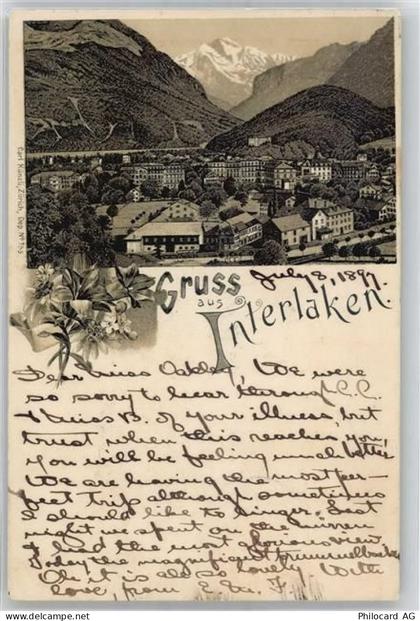 Carl Künzli, Zürich, Dep. No
Gruss
aus
Interlaken.
July 8, 1897.
Dear Miss Oakley, We were
so sorry to hear through C.C.
& Miss B. of your illness, but
trust when this reaches you,
you will be feeling much better
We are having the most per-
fect trip although sometimes
I should like to linger. Last
night we spent on the Mürren
& had the most glorious view.
Today the magnificent Trummelbach.
Oh it is all so lovely With
love, from E. M. F.
Philarchiv
Copyright PHILARCHIV AG